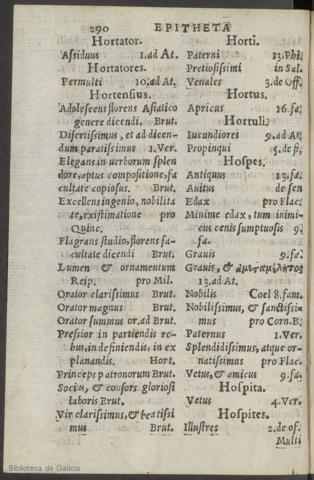 290 EPITHETA
Hortator.
Assiduus 1.ad At.
Hortatores.
Permulti 10.ad At.
Hortensius.
Adolescens florens Asiatico
genere dicendi. Brut.
Disertissimus, et ad dicen-
dum paratissimus 1.Ver.
Elegans in uerborum splen
dore, aptus compositione, fa
cultate copiosus. Brut.
Excellens ingenio, nobilita
te, existimatione pro
Quinc.
Flagrans studio, florens fa-
cultate dicendi Brut.
Lumen & ornamentum
Reip. pro Mil.
Orator clarissimus Brut.
Orator magnus Brut.
Orator summus or.ad Brut.
Pressior in partiendis re-
bus, in definiendis, in ex
planandis. Hort.
Princeps patronorum Brut.
Socius, & consors gloriosi
laboris Brut.
Vir clarissimus, & beatissi
mus Brut.
Horti.
Paterni 13.Phil.
Pretiosissimi in Sal.
Venales 3.de Off.
Hortus.
Apricus 16.fa.
Hortuli.
Iucundiores 9.ad At.
Propinqui 5.de fi.
Hospes.
Antiquus 13.fa.
Auitus de sen
Edax pro Flac.
Minime edax, tum inimi-
cus cenis sumptuosis 9.
fa.
Grauis 9.fa.
Grauis, & ἀμεταμέλητος
13.ad At.
Nobilis Coel 8.fam.
Nobilissimus, & sanctissi-
mus pro Corn.B.
Paternus 1.Ver.
Splendidissimus, atque or-
natissimus pro Flac.
Vetus, & amicus 9.fa.
Hospita.
Vetus 4.Ver.
Hospites.
Illustres 2.de of.
Multi
Biblioteca de Galicia